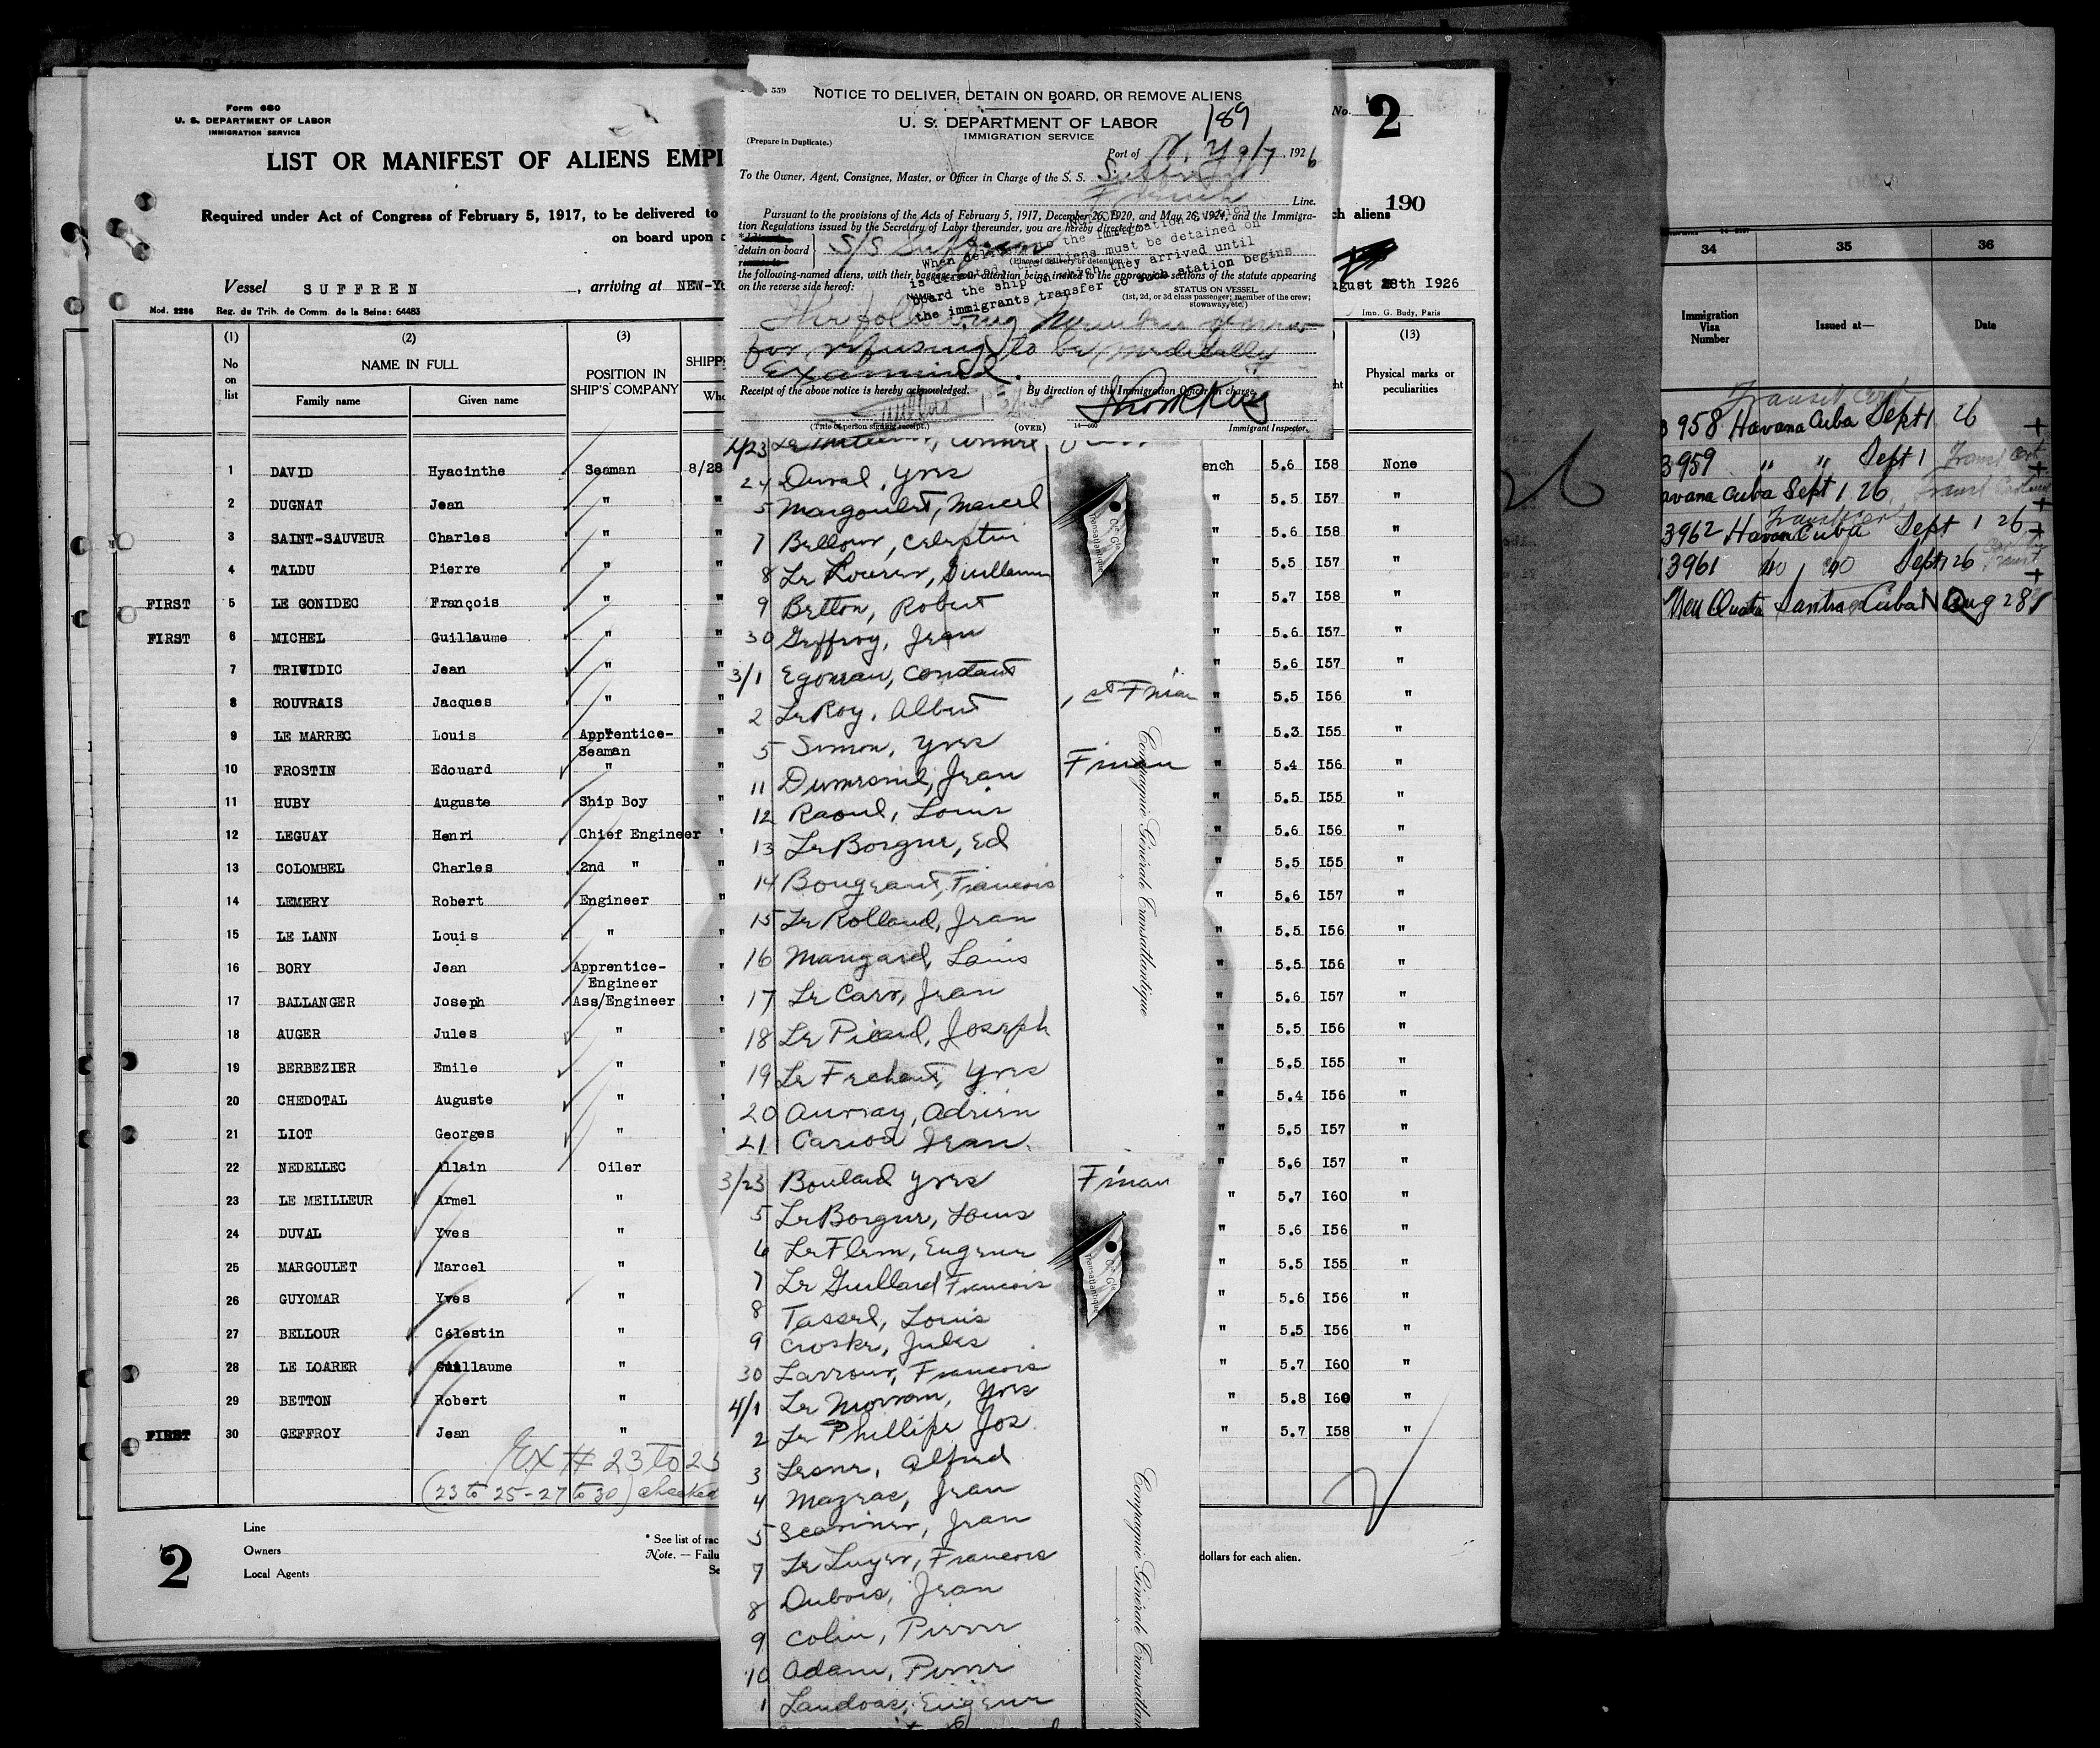 Form 680
U. S. DEPARTMENT OF LABOR
IMMIGRATION SERVICE
LIST OR MANIFEST OF ALIENS EMPL
Required under Act of Congress of February 5, 1917, to be delivered to
on board upon
Vessel SUFFREN, arriving at NEW-YO
Mod. 2286 Reg. du Trib. de Comm. de la Seine: 64483
No. 2
190
ch aliens
ugust 28th 1926
Imn. G. Budy, Paris
(1) (2) (3) (13)
No on list
NAME IN FULL
Family name Given name
POSITION IN SHIP'S COMPANY
SHIPP
Physical marks or peculiarities
1 DAVID Hyacinthe Seaman 8/28 ench 5.6 I58 None
2 DUGNAT Jean " " " 5.5 I57 "
3 SAINT-SAUVEUR Charles " " " 5.6 I58 "
4 TALDU Pierre " " " 5.5 I57 "
FIRST 5 LE GONIDEC François " " " 5.7 I58 "
FIRST 6 MICHEL Guillaume " " " 5.6 I57 "
7 TRIVIDIC Jean " " " 5.6 I57 "
8 ROUVRAIS Jacques " " " 5.5 I56 "
9 LE MARREC Louis Apprentice-Seaman " " 5.3 I55 "
10 FROSTIN Edouard " " " 5.4 I56 "
11 HUBY Auguste Ship Boy " " 5.5 I55 "
12 LEGUAY Henri Chief Engineer " " 5.6 I56 "
13 COLOMBEL Charles 2nd " " " 5.5 I55 "
14 LEMERY Robert Engineer " " 5.6 I57 "
15 LE LANN Louis " " " 5.5 I56 "
16 BORY Jean Apprentice-Engineer " " 5.5 I56 "
17 BALLANGER Joseph Ass/Engineer " " 5.6 I57 "
18 AUGER Jules " " " 5.5 I56 "
19 BERBEZIER Emile " " " 5.5 I55 "
20 CHEDOTAL Auguste " " " 5.4 I56 "
21 LIOT Georges " " " 5.5 I57 "
22 NEDELLEC Allain Oiler " 5.6 I57 "
23 LE MEILLEUR Armel " " 5.7 I60 "
24 DUVAL Yves " " 5.6 I56 "
25 MARGOULET Marcel " " 5.5 I55 "
26 GUYOMAR Yves " " 5.6 I56 "
27 BELLOUR Célestin " " 5.5 I56 "
28 LE LOARER Guillaume " " 5.7 I60 "
29 BETTON Robert " " 5.8 I60 "
FIRST 30 GEFFROY Jean " " 5.7 I58 "
Ex # 23 to 25
(23 to 25 - 27 to 30) checked
Line
Owners
Local Agents
2
* See list of rac
Note. — Failu
dollars for each alien.
559
NOTICE TO DELIVER, DETAIN ON BOARD, OR REMOVE ALIENS
189
U. S. DEPARTMENT OF LABOR
IMMIGRATION SERVICE
(Prepare in Duplicate.)
Port of N. Y 9/7, 1926
To the Owner, Agent, Consignee, Master, or Officer in Charge of the S. S. Suffren
French Line.
Pursuant to the provisions of the Acts of February 5, 1917, December 26, 1920, and May 26, 1924, and the Immigra-
tion Regulations issued by the Secretary of Labor thereunder, you are hereby directed to
detain on board S/S Suffren
(Place of delivery or detention)
the following-named aliens, with their baggage, your attention being invited to the appropriate sections of the statute appearing
on the reverse side hereof:
When delivery to the immigration station
is directed, the aliens must be detained on
board the ship on which they arrived until
the immigrants transfer to such station begins.
STATUS ON VESSEL
(1st, 2d, or 3d class passenger; member of the crew;
stowaway, etc.)
The following members of crew
for refusing to be medically
Examined.
Receipt of the above notice is hereby acknowledged. By direction of the Immigration Officer in charge,
(Title of person signing receipt.) (OVER) 14—660 Immigrant Inspector.
24 Duval, Yves
5 Margoulet, Marcel
7 Bellour, Celestin
8 Le Loarer, Guillaume
9 Betton, Robert
30 Geffroy, Jean
3/1 Egouran, Constant
2 Le Roy, Albert 1st Fman
5 Simon, Yves
11 Dumesnil, Jean Fman
12 Raoul, Louis
13 Le Borgne, Ed
14 Bougeant, Francois
15 Le Rolland, Jean
16 Mangard, Louis
17 Le Carr, Jean
18 Le Picard, Joseph
19 Le Frechent, Yves
20 Auvray, Adrien
21 Cariou Jean
Cie Gle Transatlantique
Compagnie Générale Transatlantique
3/23 Boulard Yves Fman
5 Le Borgne, Louis
6 Le Flem, Eugene
7 Le Guillard Francois
8 Tassel, Louis
9 Croske, Jules
30 Larrour, Francois
4/1 Le Morvan, Yves
2 Le Phillipe Jos
3 Lesne, Alfred
4 Mazeas, Jean
5 Jean
7 Le Luyer, Francois
8 Dubois, Jean
9 Colin, Pierre
10 Adam, Pierre
1 Landoas, Eugene
Cie Gle Transatlantique
Compagnie Générale Transatlan
34 35 36
Immigration Visa Number Issued at— Date
Transit Cert
3958 Havana Cuba Sept 1 26 +
3959 " " Sept 1 Transit Cert +
avana Cuba Sept 1 26 +
3962 Havana Cuba Sept 1 26 +
3961 do do Sept 1 26 +
Non Quota Santiago Cuba Aug 28
26